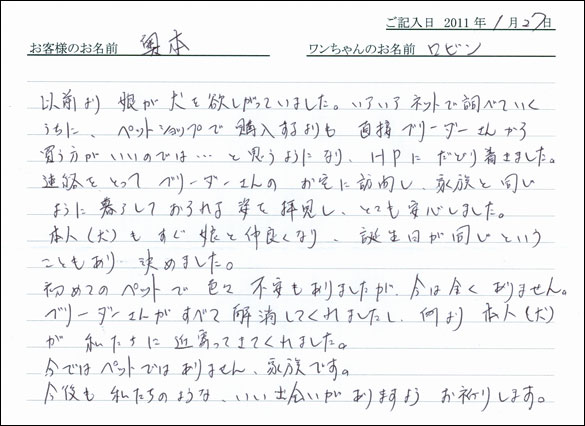 ご記入日 2011年 1月27日
お客様のお名前 奥本 ワンちゃんのお名前 ロビン
以前より 娘が犬を欲しがっていました。いろいろネットで調べていく
うちに、ペットショップで購入するよりも 直接ブリーダーさんから
買う方がいいのでは…と思うようになり、HPにたどり着きました。
連絡をとってブリーダーさんのお宅に訪問し、家族と同じ
ように暮らしておられる姿を拝見し、とても安心しました。
本人(犬)もすぐ娘と仲良くなり、誕生日が同じという
こともあり 決めました。
初めてのペットで色々不安もありましたが、今は全くありません。
ブリーダーさんがすべて解消してくれましたし、何より本人(犬)
が私たちに近寄ってきてくれました。
今ではペットではありません、家族です。
今後も私たちのような、いい出会いがありますよう お祈りします。